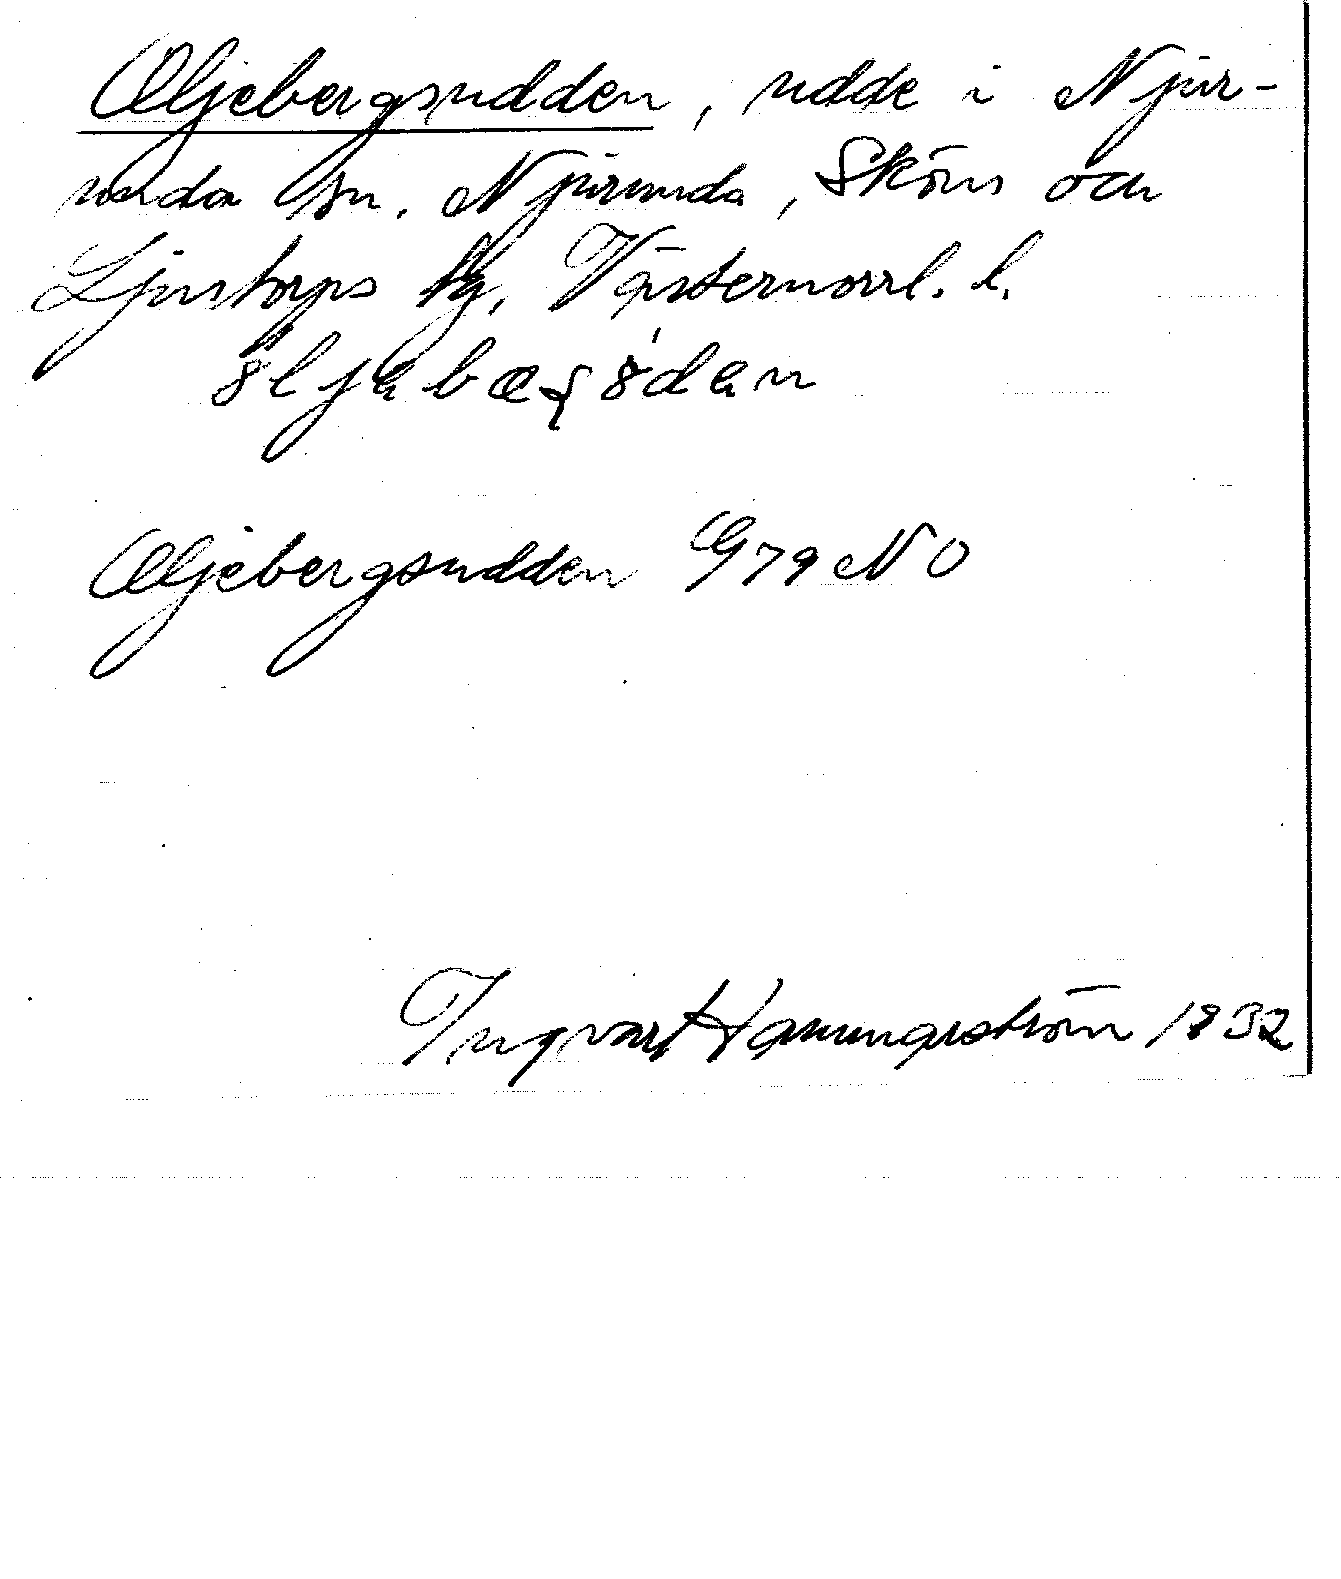 Oljebergsudden, udde i Njur-
unda sn. Njurunda, Sköns och
Ljustorps tg, Västernorrl. l.
Oljebergsudden G79 NO
Ingvar Hammarström 1932